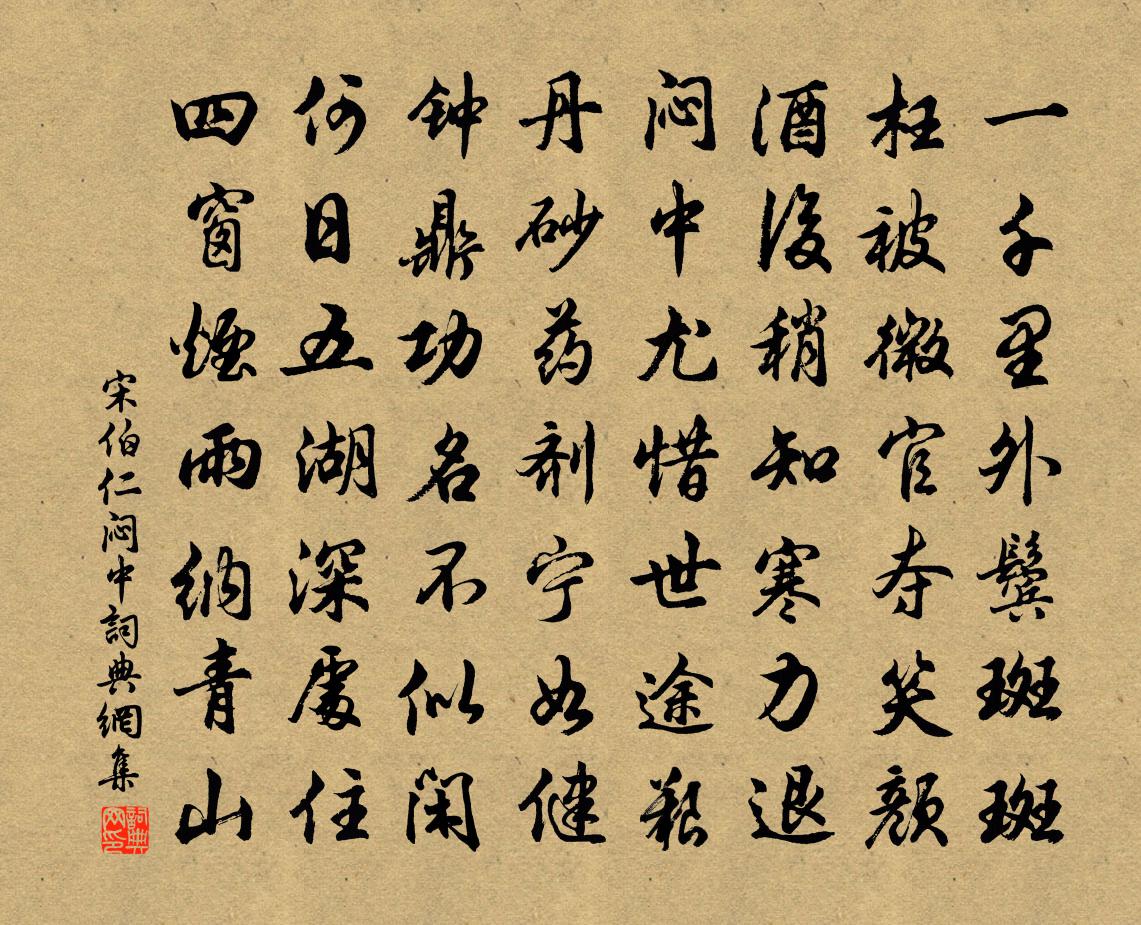 一千里外鬓斑斑
枉被微官夺笑颜
酒後稍知寒力退
闷中尤惜世途艰
丹砂药剂宁如健
钟鼎功名不似闲
何日五湖深處住
四窗煙雨纳青山
宋伯仁闷中詞典網集
詞典
网印